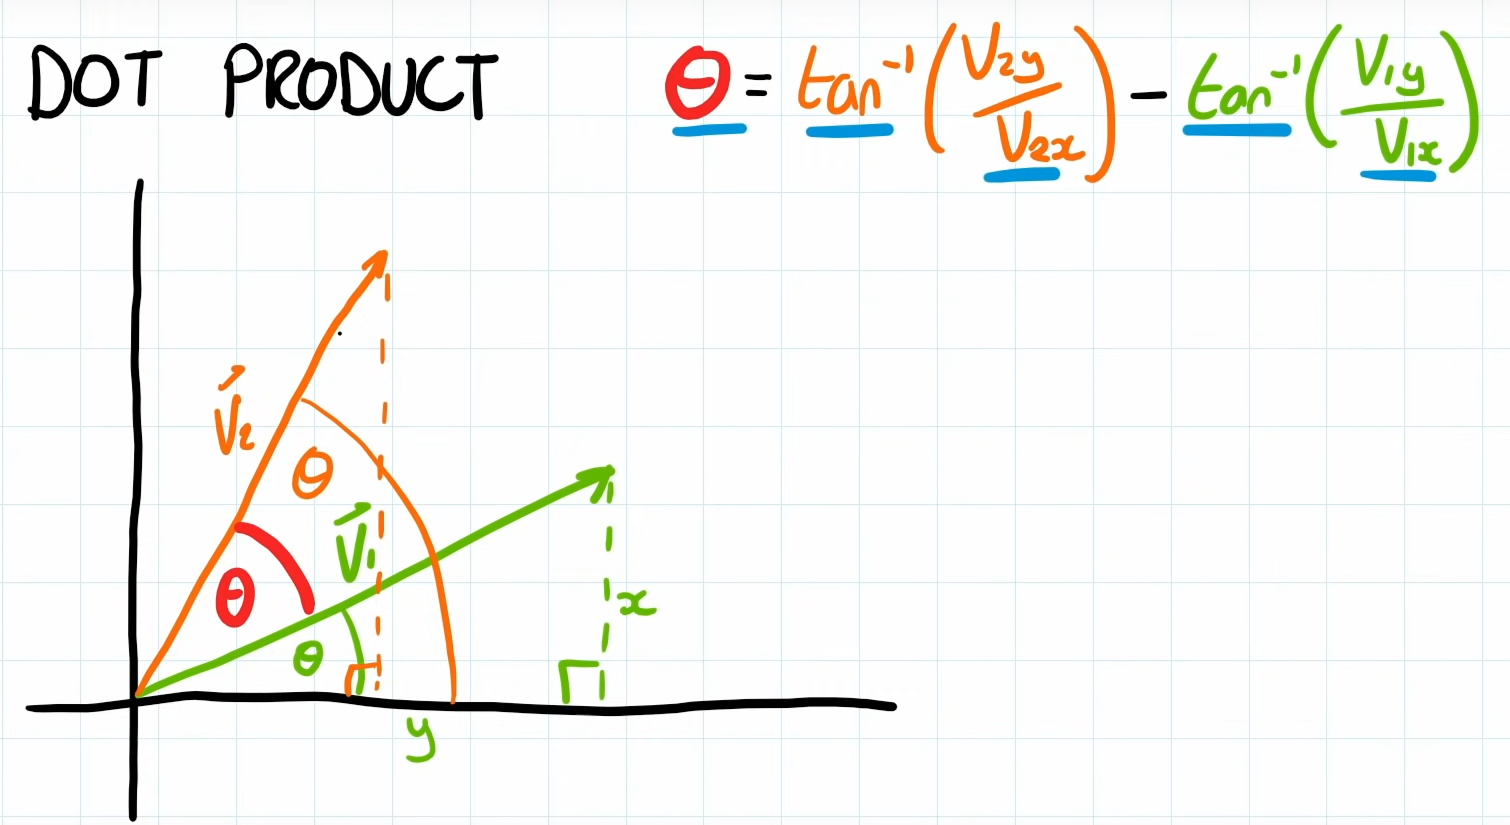 DOT PRODUCT
θ = tan⁻¹(V₂y/V₂x) - tan⁻¹(V₁y/V₁x)
V⃗₂
θ
V⃗₁
θ
x
θ
y